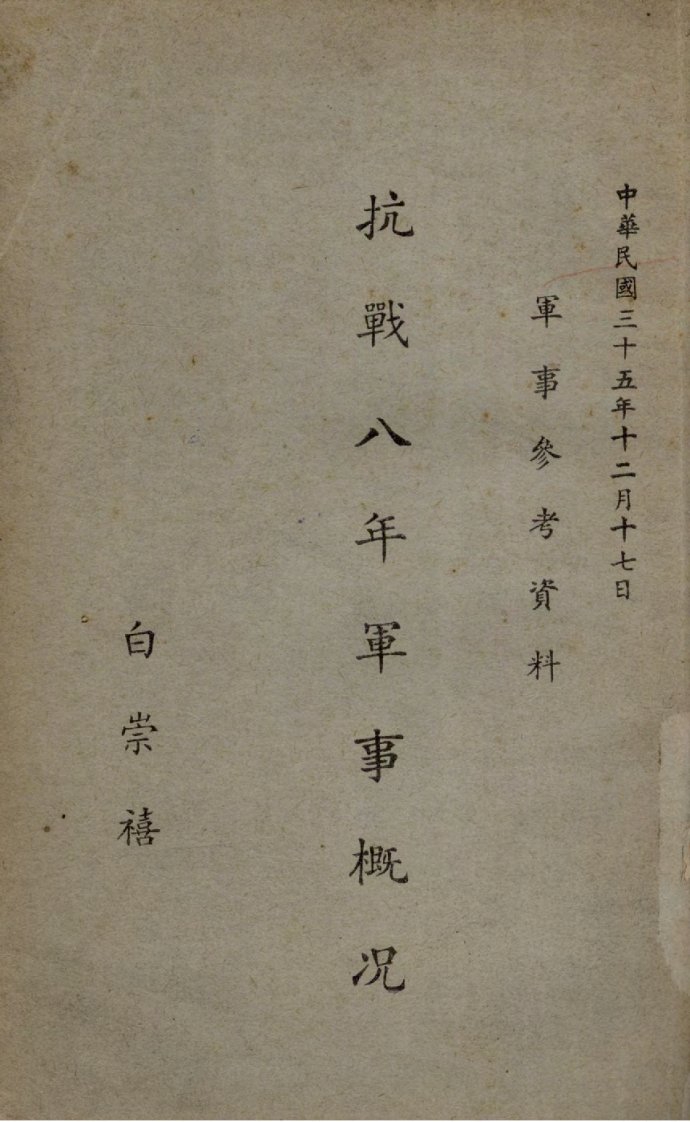 中華民國三十五年十二月十七日
軍事參考資料
抗戰八年軍事概况
白崇禧